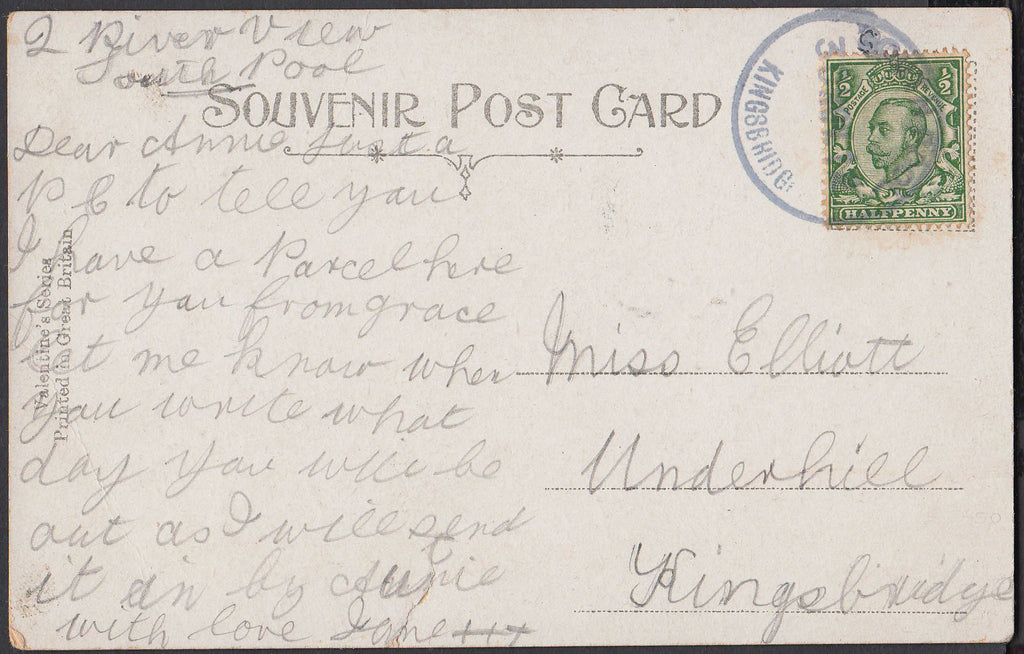 2 River View
South Pool
SOUVENIR POST CARD
Dear Annie Just a
P C to tell you
I have a Parcel here
for you from grace
let me know when
you write what
day you will be
out as I will send
it in by Annie
with love Jane
Valentine's Series
Printed in Great Britain
KINGSBRIDGE
½ ½
POSTAGE REVENUE
HALFPENNY
Miss Elliott
Underhill
Kingsbridge